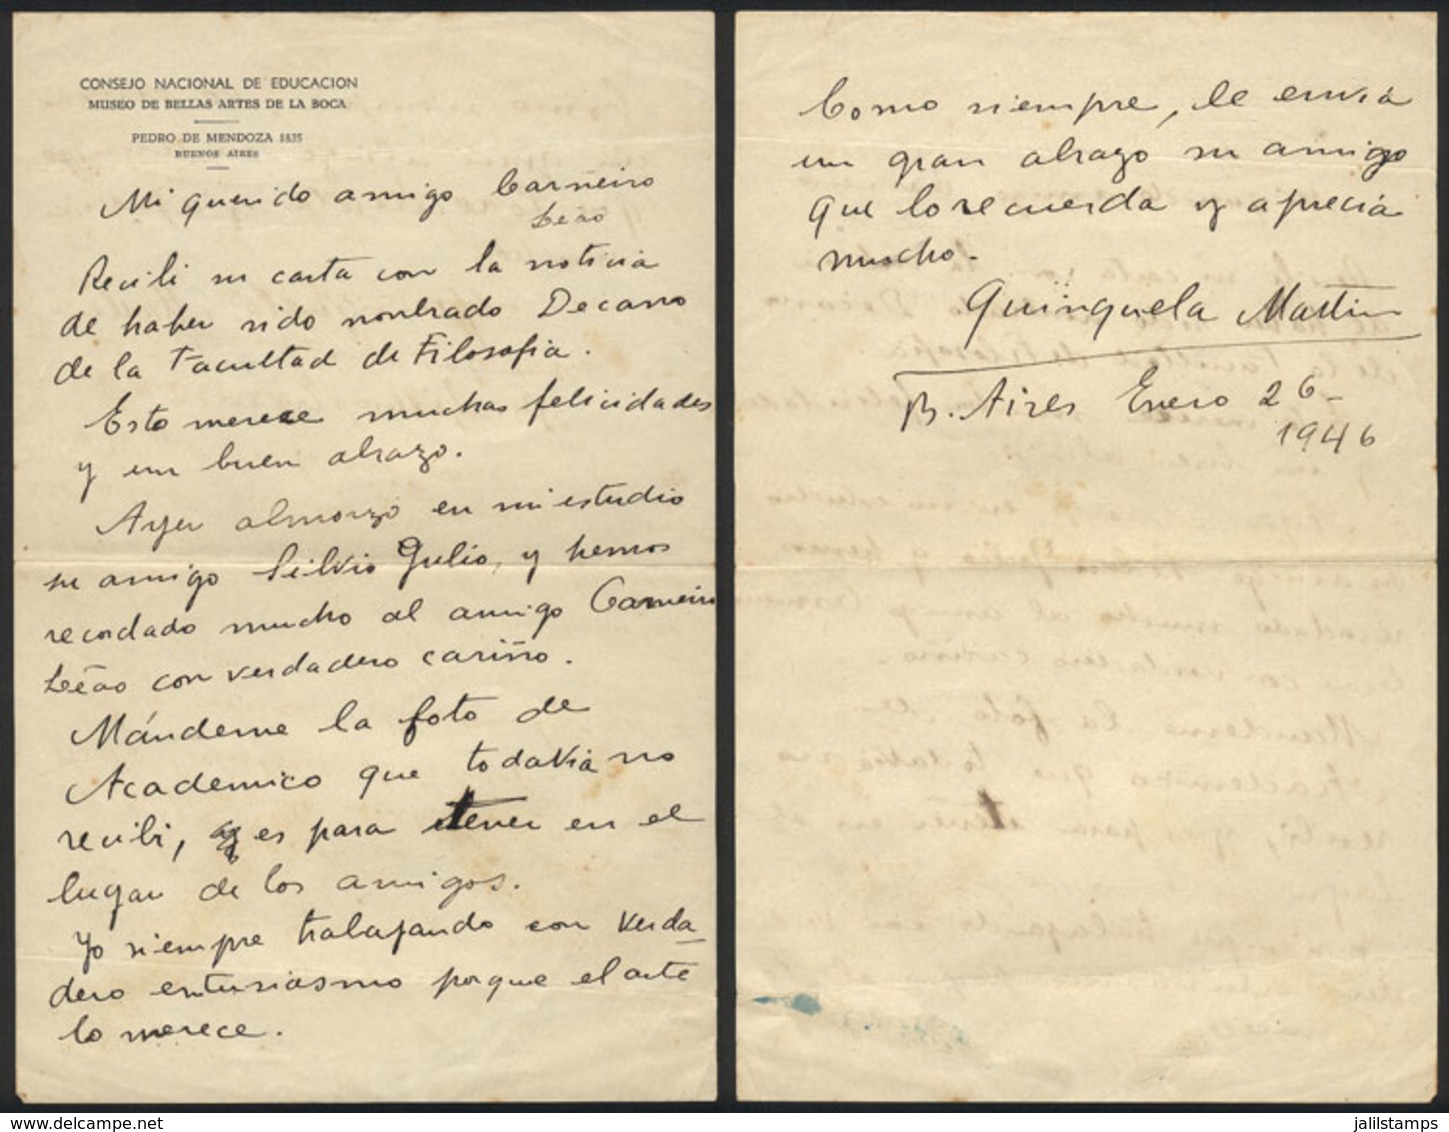 CONSEJO NACIONAL DE EDUCACION
MUSEO DE BELLAS ARTES DE LA BOCA
PEDRO DE MENDOZA 1835
BUENOS AIRES
Mi querido amigo Carneiro
Leão
Recibi su carta con la noticia
de haber sido nombrado Decano
de la Facultad de Filosofia.
Esto merece muchas felicidades
y un buen abrazo.
Ayer almorzo en mi estudio
su amigo Silvio Gulio, y hemos
recordado mucho al amigo Carneiro
Leão con verdadero cariño.
Mándeme la foto de
Academico que todavia no
recibi, y es para tener en el
lugar de los amigos.
Yo siempre trabajando con verda-
dero entusiasmo porque el arte
lo merece.
Como siempre, le envia
un gran abrazo su amigo
que lo recuerda y aprecia
mucho.
Quinquela Martin
B. Aires Enero 26-
1946
jalilstamps